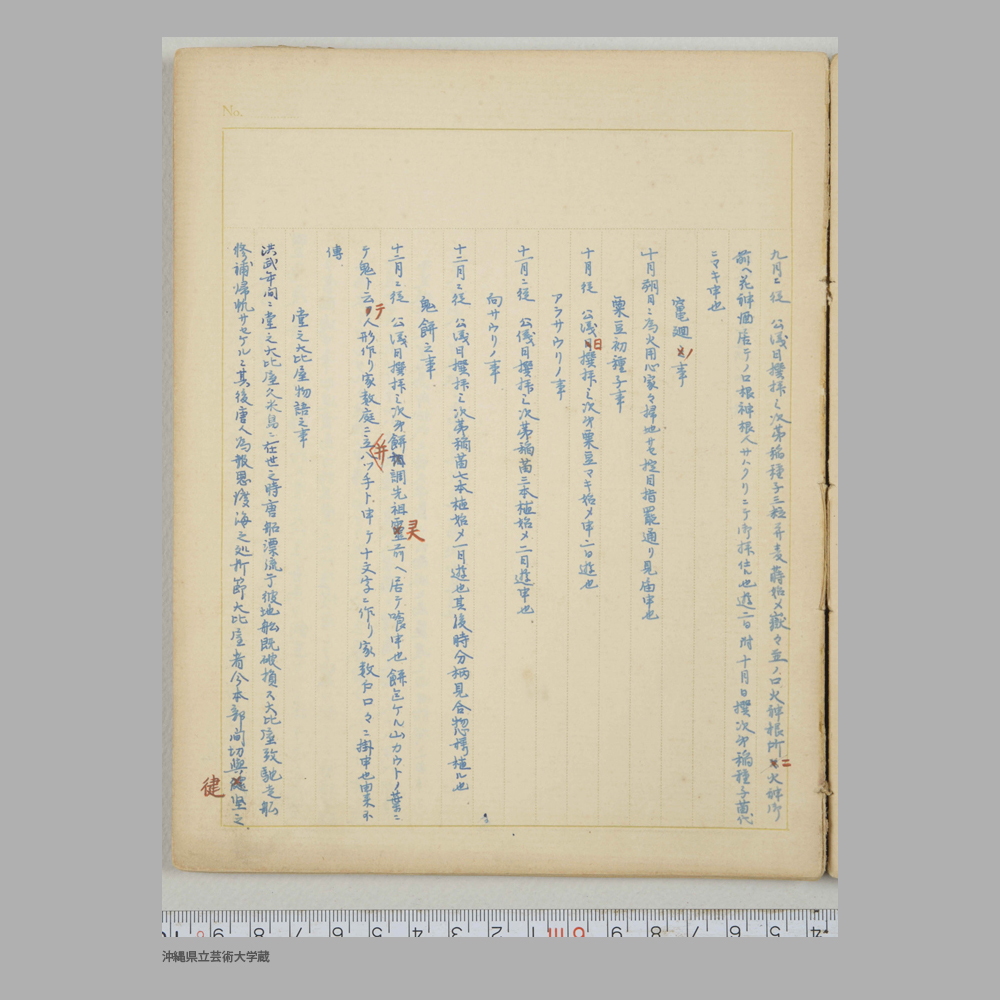 No.
九月ニ従 公儀日撰拝ミ次第稲種子三粒并麦蒔始メ嶽々并ノロ火神根所ニ火神御
前ヘ花神酒居テノロ根神根人サハクリニテ御拝仕ル也遊二日附十月日撰次第稲種子苗代
ニマキ申也
竃廻ノ事
十月朔日ニ為火用心家々掃地サセ捴目指罷通リ見届申也
粟豆初種子事
十月 従 公儀日撰拝ミ次第粟豆マキ始メ申二日遊也
アラサウリノ事
十一月ニ従 公儀日撰拝ミ次第稲苗三本植始メ二日遊申也
向サウリノ事
十二月ニ従 公儀日撰拝ミ次第稲苗七本植始メ一日遊也其後時分柄見合惣様植ル也
鬼餅之事
十二月ニ従 公儀日撰拝ミ次第餅調先祖霊前ヘ居テ喰申也餅包ケル山カウトノ葉ニ
テ鬼ト云テ人形作リ家数庭ニ立ハツ手ト申テ十文字ニ作リ家数戸口々ニ掛申也由来不
傳
併
灵
堂之大比屋物語之事
洪武年間ニ堂之大比屋久米島ニ在世之時唐船漂流于彼地船既破損ス大比屋致馳走船
修補帰帆サセケルニ其後唐人為報恩渡海之処折節大比屋者今本部間切與健堅之
健
沖縄県立芸術大学蔵